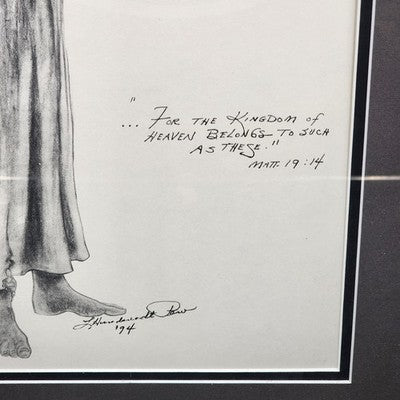 "
... FOR THE KINGDOM of
HEAVEN BELONGS TO SUCH
AS THESE."
MATT. 19:14
'94